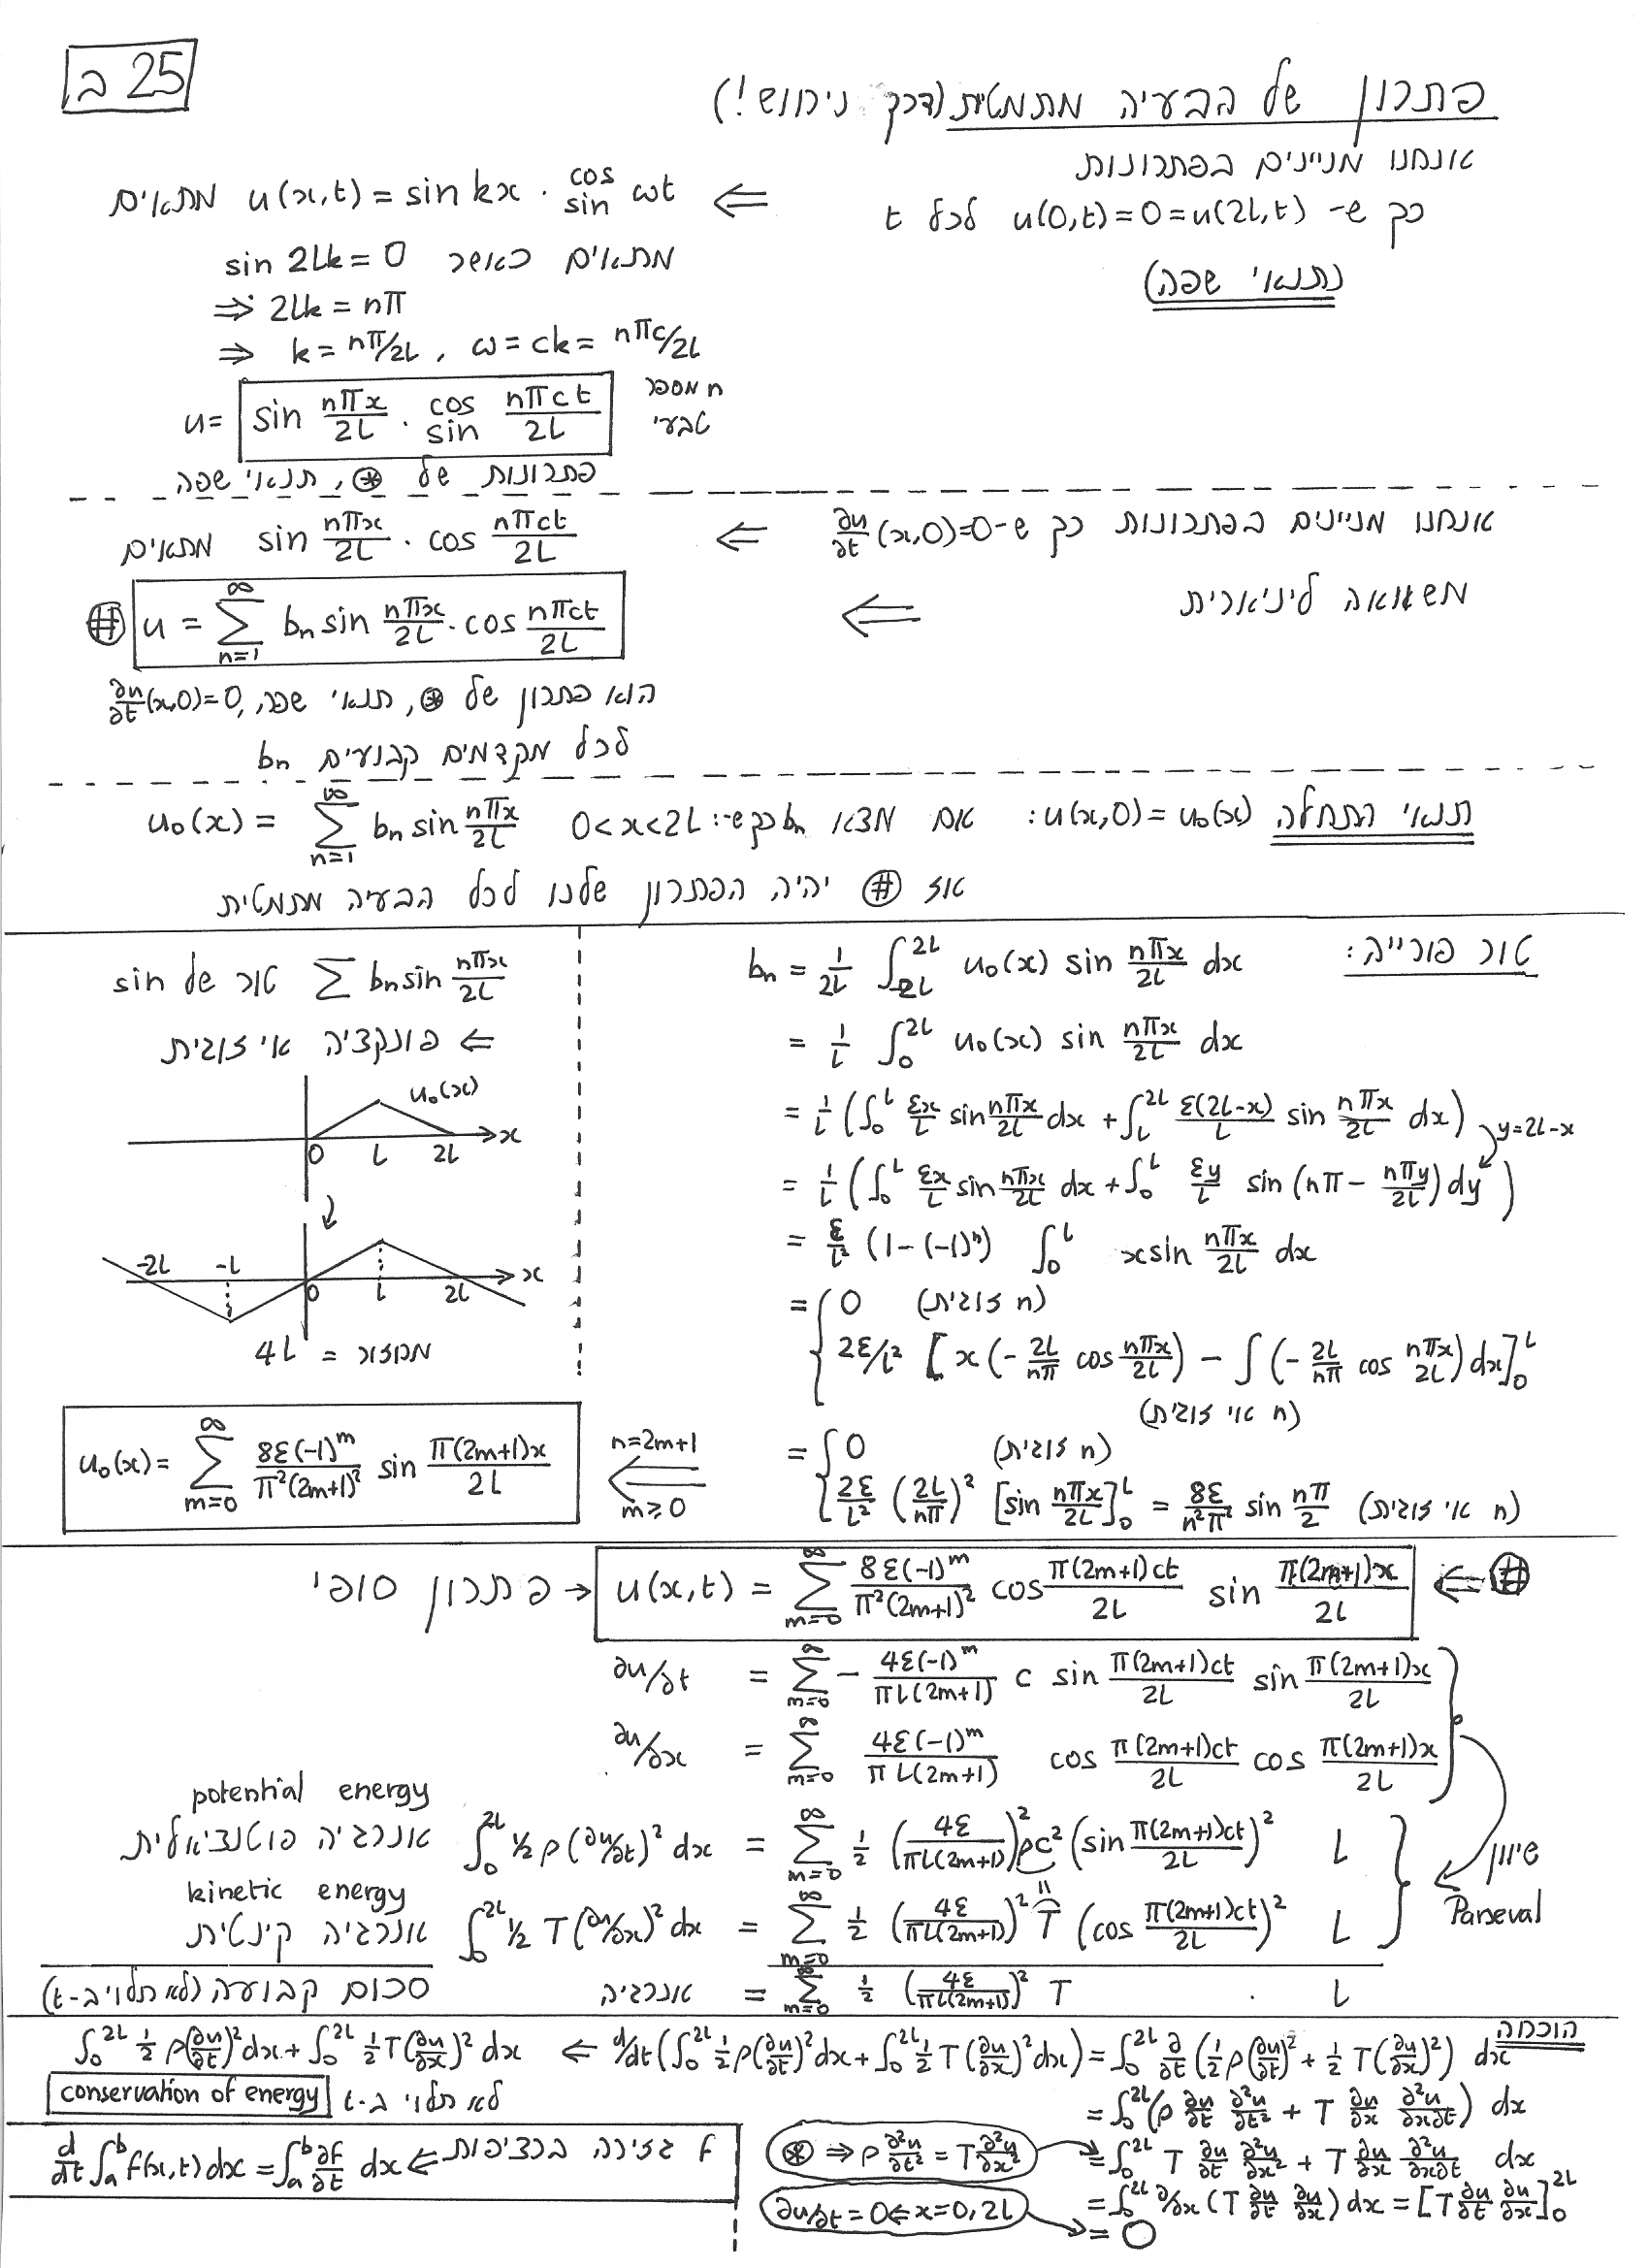 25 ב
פתרון של הבעיה מתמטית (דרך ניחוש!)
אנחנו מניינים בפתרונות
כך ש- u(0,t)=0=u(2L,t) לכל t
(תנאי שפה)
⇐ u(x,t) = sin kx · cos/sin ωt מתאים
מתאים כאשר sin 2Lk = 0
⇒ 2Lk = nπ
⇒ k = nπ/2L , ω = ck = nπc/2L
u = sin nπx/2L · cos/sin nπct/2L n מספר טבעי
פתרונות של ⊛, תנאי שפה
אנחנו מניינים בפתרונות כך ש- ∂u/∂t (x,0)=0 ⇐ sin nπx/2L · cos nπct/2L מתאים
משוואה לינארית ⇐
# u = ∑_{n=1}^{∞} bₙ sin nπx/2L · cos nπct/2L
הוא פתרון של ⊛, תנאי שפה, ∂u/∂t (x,0)=0,
לכל מקדמים קבועים bₙ
תנאי התחלה u(x,0) = u₀(x): אם מצא bₙ כך ש-: 0<x<2L u₀(x) = ∑_{n=1}^{∞} bₙ sin nπx/2L
אז # יהיה הפתרון שלנו לכל הבעיה מתמטית
טור פורייה: bₙ = 1/2L ∫_{-2L}^{2L} u₀(x) sin nπx/2L dx
= 1/L ∫_0^{2L} u₀(x) sin nπx/2L dx
= 1/L (∫_0^L εx/L sin nπx/2L dx + ∫_L^{2L} ε(2L-x)/L sin nπx/2L dx) y=2L-x
= 1/L (∫_0^L εx/L sin nπx/2L dx + ∫_0^L εy/L sin (nπ - nπy/2L) dy)
= ε/L² (1-(-1)ⁿ) ∫_0^L x sin nπx/2L dx
= { 0 (n זוגית)
2ε/L² [x(-2L/nπ cos nπx/2L) - ∫(-2L/nπ cos nπx/2L) dx]_0^L
(n אי זוגית)
= { 0 (n זוגית)
2ε/L² (2L/nπ)² [sin nπx/2L]_0^L = 8ε/n²π² sin nπ/2 (n אי זוגית)
∑ bₙ sin nπx/2L טור של sin
⇐ פונקציה אי זוגית
u₀(x)
0 L 2L x
-2L -L 0 L 2L x
מחזור = 4L
n=2m+1
m≥0
u₀(x) = ∑_{m=0}^{∞} 8ε(-1)^m/π²(2m+1)² sin π(2m+1)x/2L
פתרון סופי → u(x,t) = ∑_{m=0}^{∞} 8ε(-1)^m/π²(2m+1)² cos π(2m+1)ct/2L sin π(2m+1)x/2L ⇐ #
∂u/∂t = ∑_{m=0}^{∞} - 4ε(-1)^m/πL(2m+1) c sin π(2m+1)ct/2L sin π(2m+1)x/2L
∂u/∂x = ∑_{m=0}^{∞} 4ε(-1)^m/πL(2m+1) cos π(2m+1)ct/2L cos π(2m+1)x/2L
potential energy
אנרגיה פוטנציאלית ∫_0^{2L} ½ρ(∂u/∂t)² dx = ∑_{m=0}^{∞} ½ (4ε/πL(2m+1))² ρc² (sin π(2m+1)ct/2L)² L
kinetic energy
אנרגיה קינטית ∫_0^{2L} ½T(∂u/∂x)² dx = ∑_{m=0}^{∞} ½ (4ε/πL(2m+1))² T (cos π(2m+1)ct/2L)² L
שוויון
Parseval
סכום קבועה (לא תלוי ב-t) אנרגיה = ∑_{m=0}^{∞} ½ (4ε/πL(2m+1))² T . L
הוכחה
∫_0^{2L} ½ρ(∂u/∂t)² dx + ∫_0^{2L} ½T(∂u/∂x)² dx ⇐ d/dt (∫_0^{2L} ½ρ(∂u/∂t)² dx + ∫_0^{2L} ½T(∂u/∂x)² dx) = ∫_0^{2L} ∂/∂t (½ρ(∂u/∂t)² + ½T(∂u/∂x)²) dx
conservation of energy לא תלוי ב-t
= ∫_0^{2L} (ρ ∂u/∂t ∂²u/∂t² + T ∂u/∂x ∂²u/∂x∂t) dx
⊛ ⇒ ρ ∂²u/∂t² = T ∂²u/∂x²
= ∫_0^{2L} T ∂u/∂t ∂²u/∂x² + T ∂u/∂x ∂²u/∂x∂t dx
= ∫_0^{2L} ∂/∂x (T ∂u/∂t ∂u/∂x) dx = [T ∂u/∂t ∂u/∂x]_0^{2L}
∂u/∂t = 0 ⇐ x=0,2L
= 0
d/dt ∫_a^b f(x,t) dx = ∫_a^b ∂f/∂t dx ⇐ f גזירה ברציפות